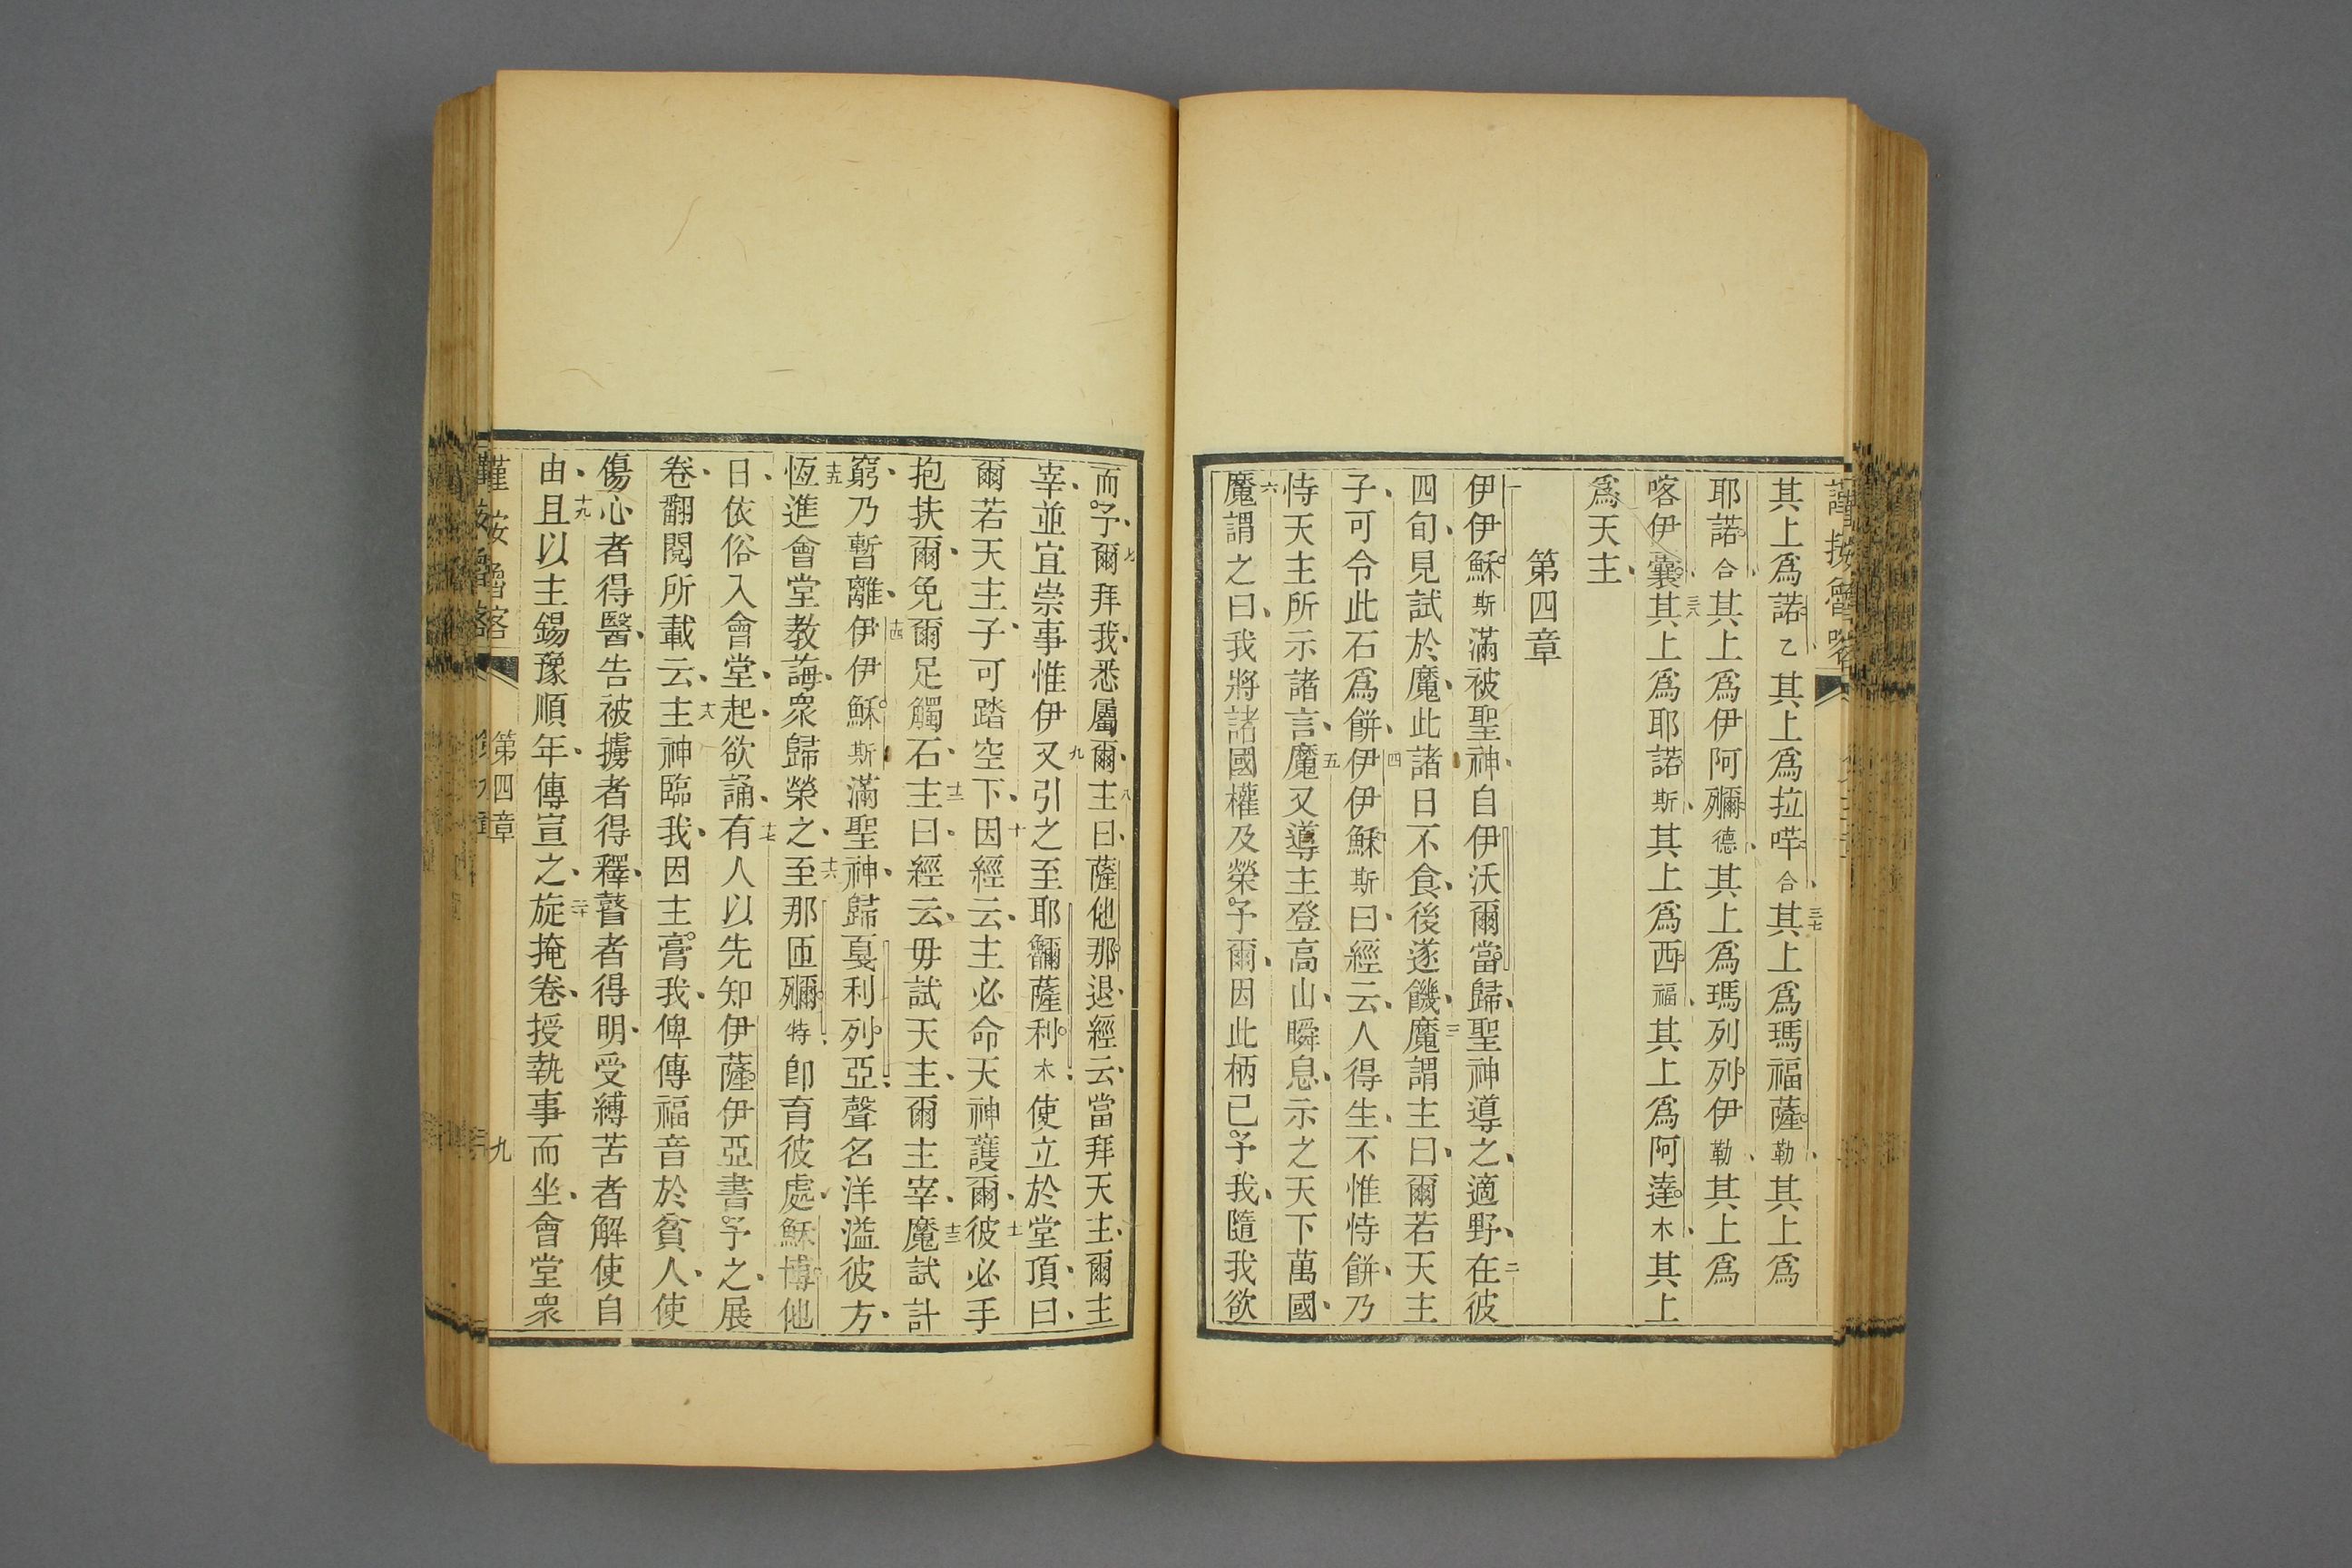 謹按魯喀
其上爲諾乙其上爲拉㗫合三七其上爲瑪福薩勒其上爲
耶諾合其上爲伊阿𡃤德其上爲瑪列列伊勒其上爲
喀伊囊三八其上爲耶諾斯其上爲西福其上爲阿達木其上
爲天主
第四章
一伊伊穌斯滿被聖神自伊沃爾當歸聖神導之適野二在彼
四旬見試於魔此諸日不食後遂饑三魔謂主曰爾若天主
子可令此石爲餅四伊伊穌斯曰經云人得生不惟恃餅乃
恃天主所示諸言五魔又導主登高山瞬息示之天下萬國
六魔謂之曰我將諸國權及榮予爾因此柄已予我隨我欲
而予七爾拜我悉屬爾八主曰薩他那退經云當拜天主爾主
宰並宜崇事惟伊九又引之至耶𬎆薩利木使立於堂頂曰
爾若天主子可踏空下十因經云主必命天神護爾十一彼必手
抱扶爾免爾足觸石十二主曰經云毋試天主爾主宰十三魔試計
窮乃暫離十四伊伊穌斯滿聖神歸戛利列亞聲名洋溢彼方
十五恆進會堂教誨眾歸榮之十六至那匝𡃤特卽育彼處穌博他
日依俗入會堂起欲誦十七有人以先知伊薩伊亞書予之展
卷翻閱所載云十八主神臨我因主膏我俾傳福音於貧人使
傷心者得醫告被擄者得釋瞽者得明受縛苦者解使自
由十九且以主錫豫順年傳宣之二十旋掩卷授執事而坐會堂眾
謹按魯喀 第四章 九